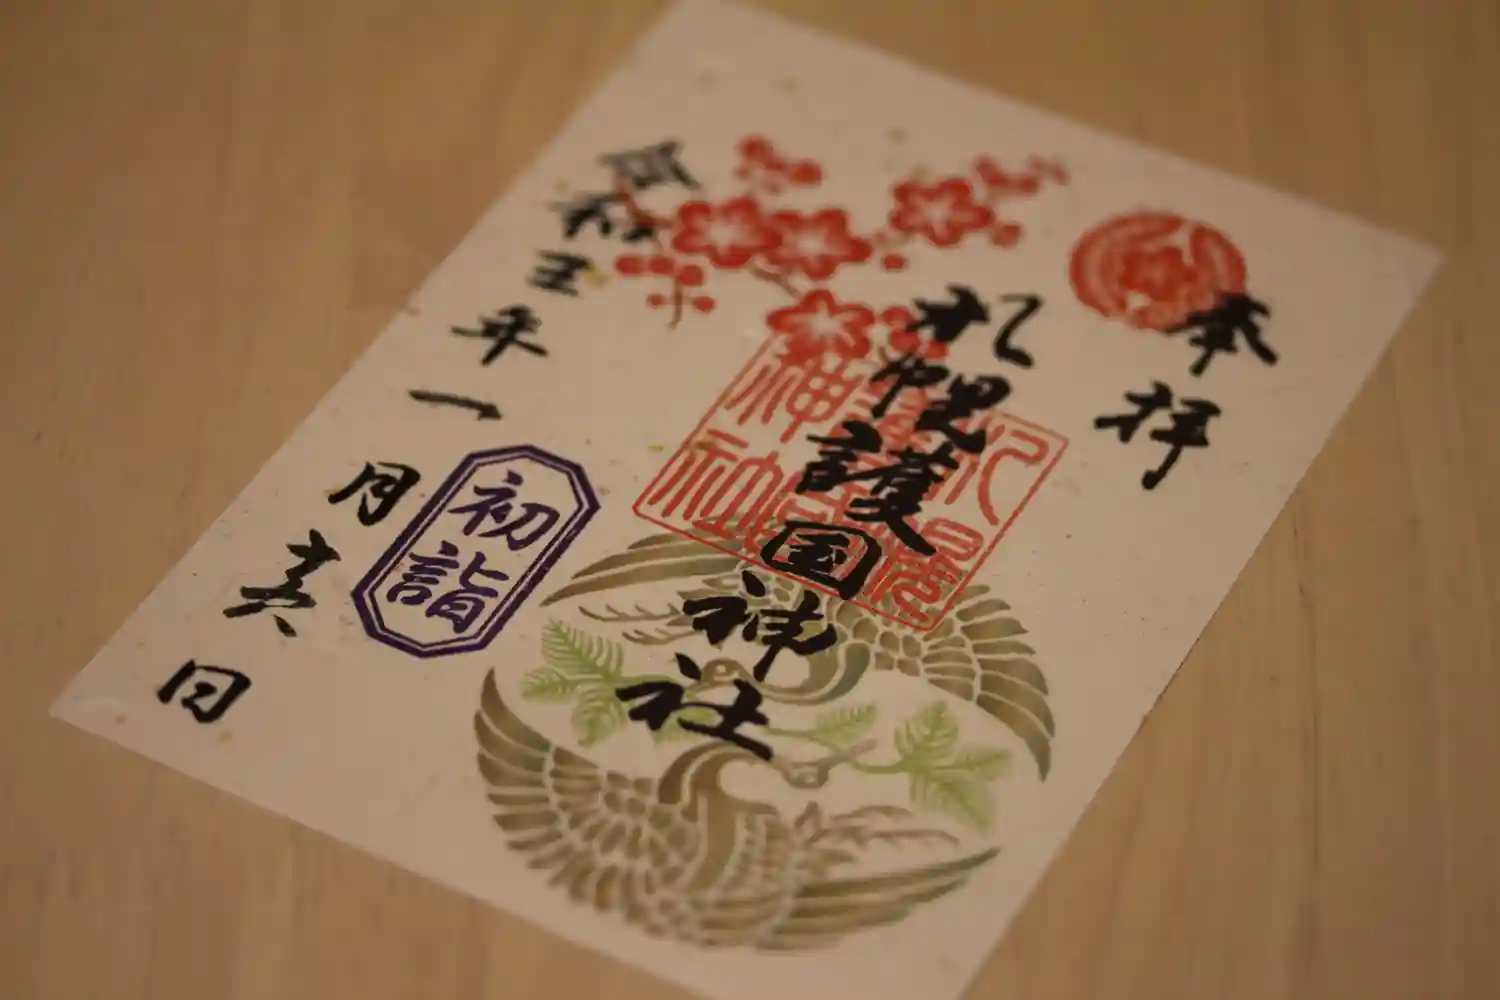 奉拝
札幌護国神社
札幌
護國
神社
令和五年一月 日
初詣